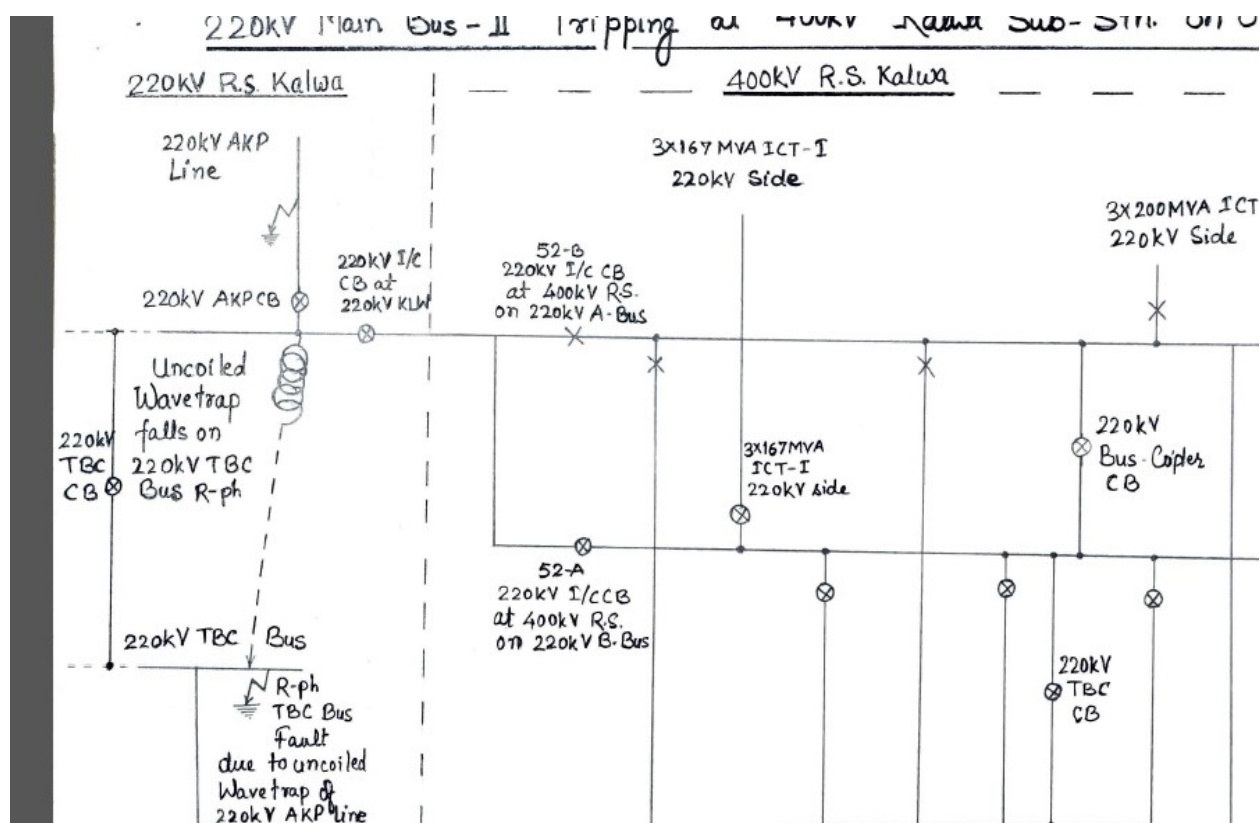 220kV Main Bus-II Tripping at 400kV Kalwa Sub-Stn. on
220kV R.S. Kalwa
400kV R.S. Kalwa
220kV AKP
Line
3X167MVA ICT-I
220kV Side
3X200MVA ICT
220kV Side
220kV AKP CB
220kV I/C
CB at
220kV KLW
52-B
220kV I/C CB
at 400kV R.S.
on 220kV A-Bus
Uncoiled
Wavetrap
falls on
220kV TBC
Bus R-ph
220kV
TBC
CB
3X167MVA
ICT-I
220kV side
220kV
Bus-Copler
CB
52-A
220kV I/CCB
at 400kV R.S.
on 220kV B-Bus
220kV TBC Bus
R-ph
TBC Bus
Fault
due to uncoiled
Wavetrap of
220kV AKP line
220kV
TBC
CB